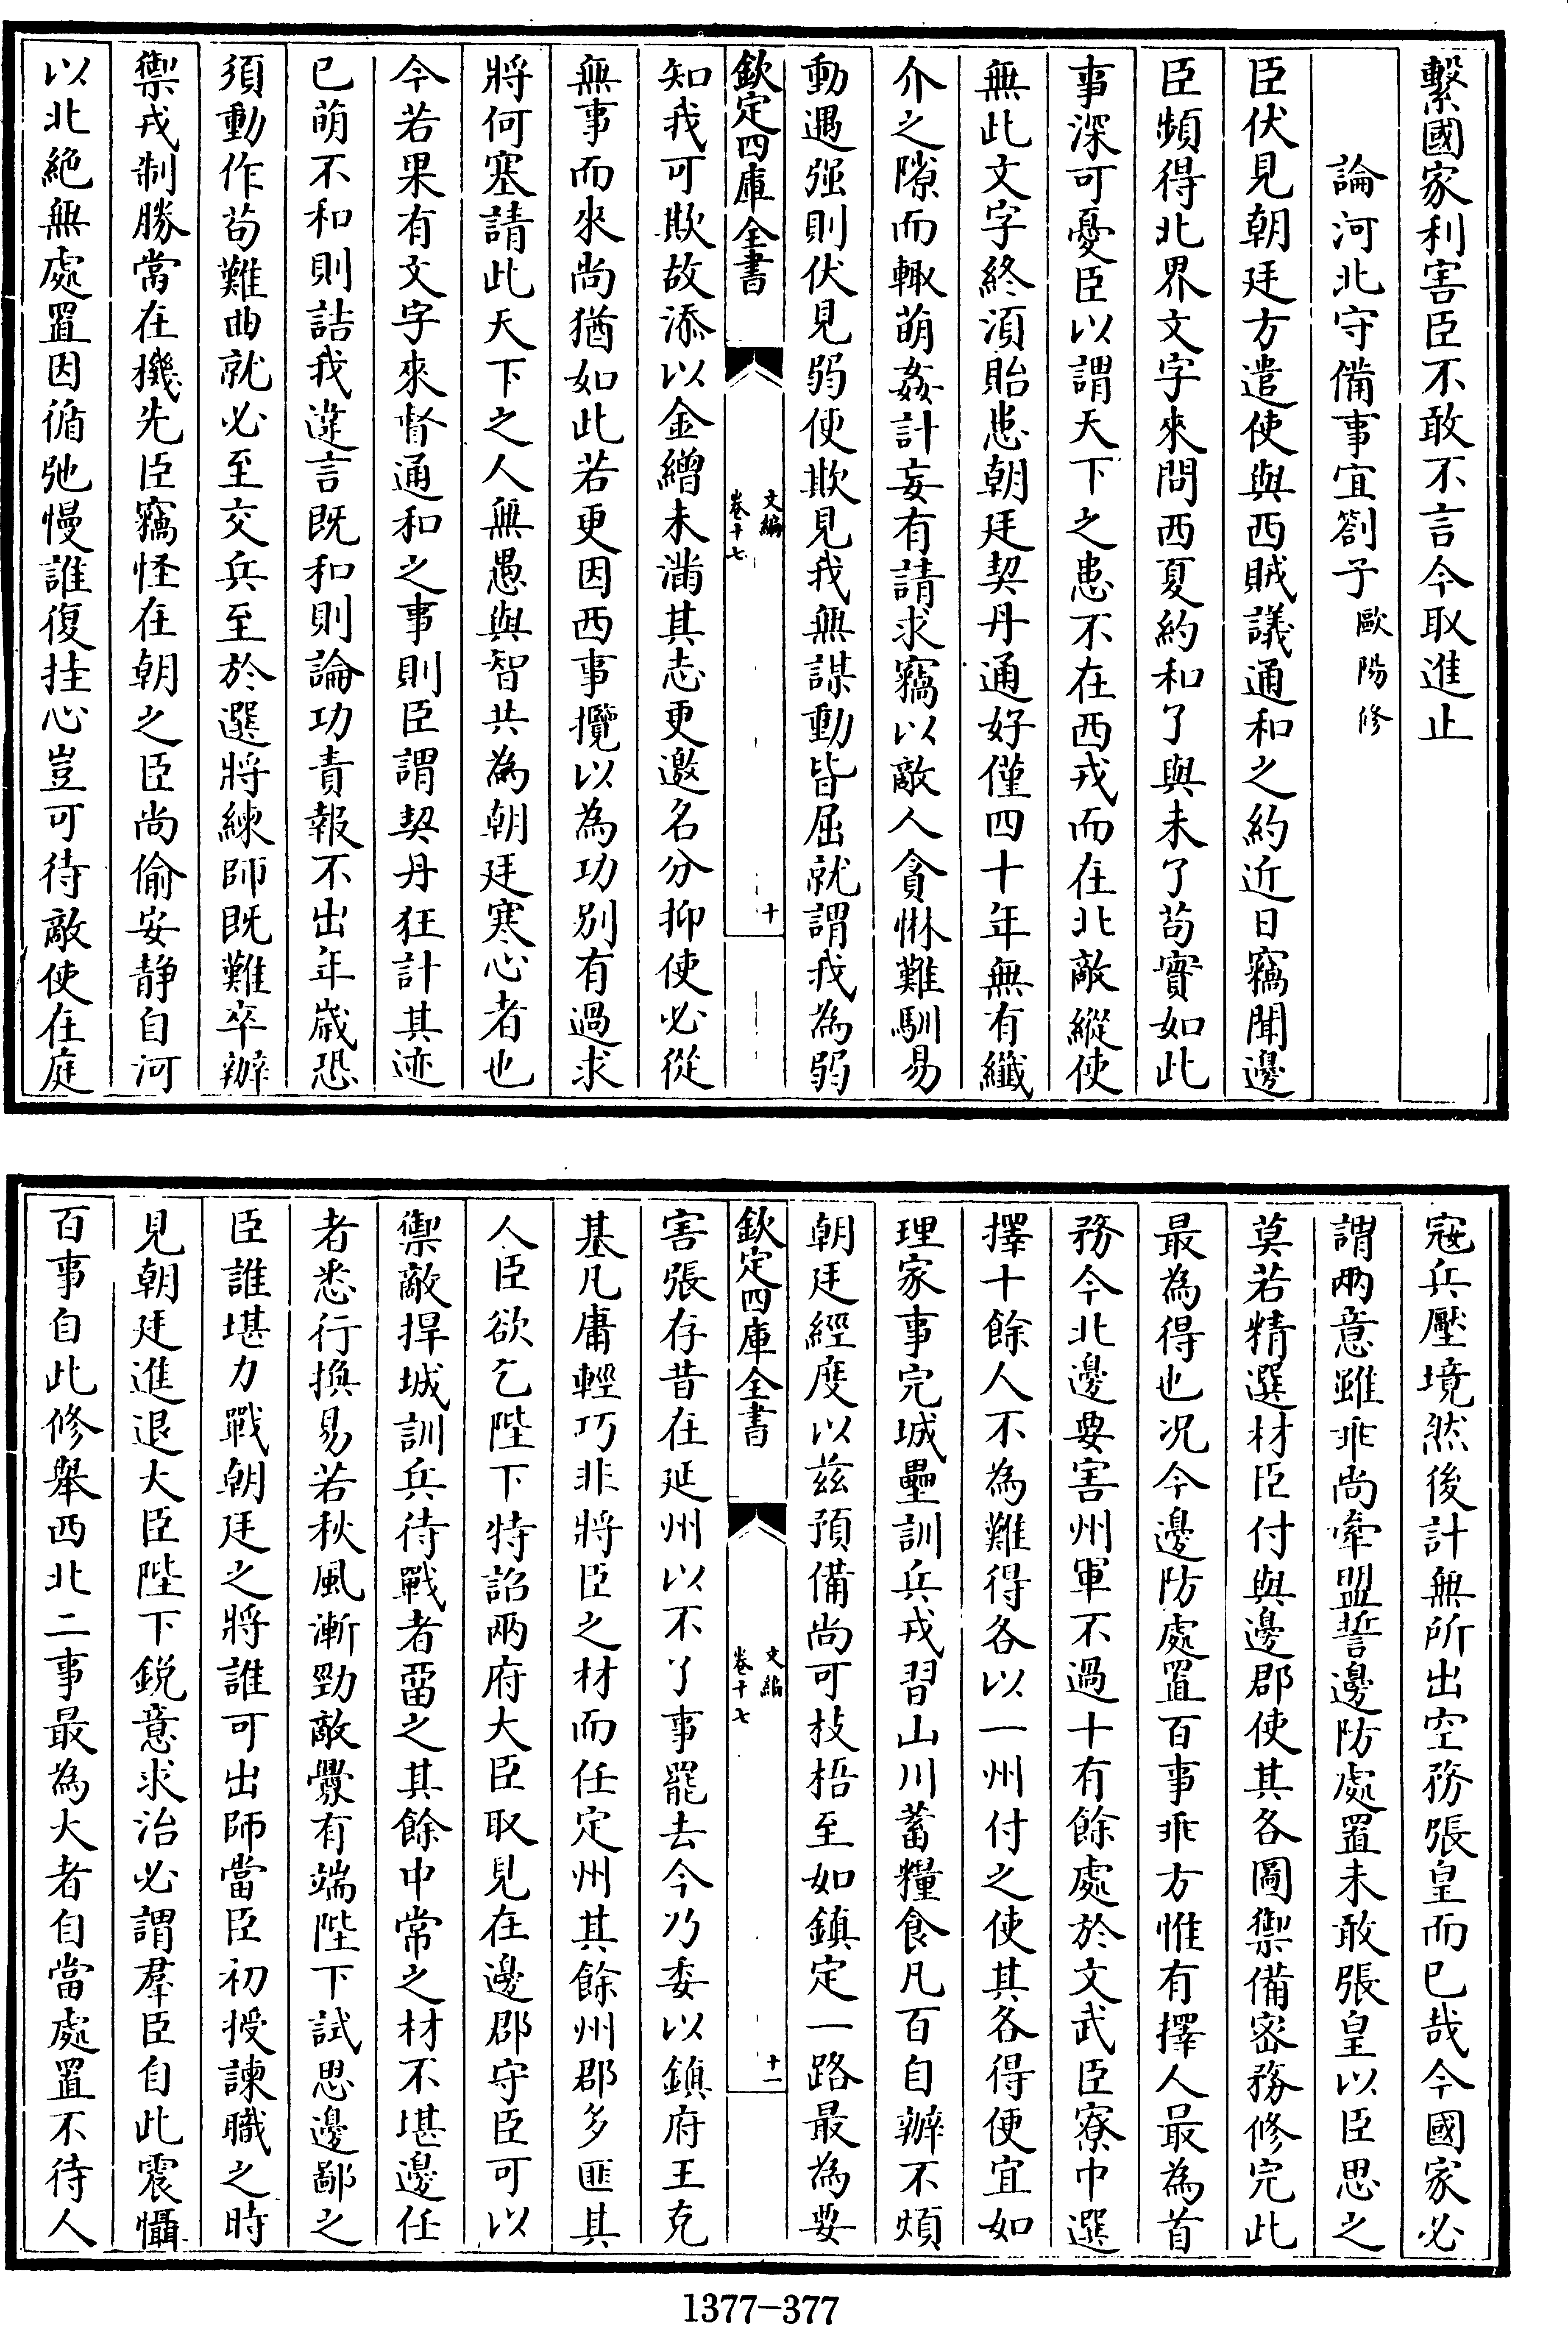 繫國家利害臣不敢不言今取進止
論河北守備事宜劄子歐陽修
臣伏見朝廷方遣使與西賊議通和之約近日竊聞邊
臣頻得北界文字來問西夏約和了與未了苟實如此
事深可憂臣以謂天下之患不在西戎而在北敵縱使
無此文字終須貽患朝廷契丹通好僅四十年無有纖
介之隙而輙萌姦計妄有請求竊以敵人貪惏難馴易
動遇强則伏見弱便欺見我無謀動皆屈就謂我為弱
欽定四庫全書
文編
卷十七
十
知我可欺故添以金繒未滿其志更邀名分抑使必從
無事而來尚猶如此若更因西事攬以為功别有過求
將何塞請此天下之人無愚與智共為朝廷寒心者也
今若果有文字來督通和之事則臣謂契丹狂計其迹
已萌不和則詰我違言既和則論功責報不出年嵗恐
須動作苟難曲就必至交兵至於選將練師既難卒辦
禦戎制勝當在機先臣竊怪在朝之臣尚偷安静自河
以北絶無處置因循弛慢誰復挂心豈可待敵使在庭
宼兵壓境然後計無所出空務張皇而已哉今國家必
謂兩意雖乖尚牽盟誓邊防處置未敢張皇以臣思之
莫若精選材臣付與邊郡使其各圖禦備密務修完此
最為得也况今邊防處置百事乖方惟有擇人最為首
務今北邊要害州軍不過十有餘處於文武臣寮中選
擇十餘人不為難得各以一州付之使其各得便宜如
理家事完城壘訓兵戎習山川蓄糧食凡百自辦不煩
朝廷經度以兹預備尚可枝梧至如鎮定一路最為要
欽定四庫全書
文編
卷十七
十一
害張存昔在延州以不了事罷去今乃委以鎮府王克
基凡庸輕巧非將臣之材而任定州其餘州郡多匪其
人臣欲乞陛下特詔兩府大臣取見在邊郡守臣可以
禦敵捍城訓兵待戰者畱之其餘中常之材不堪邊任
者悉行換易若秋風漸勁敵釁有端陛下試思邊鄙之
臣誰堪力戰朝廷之將誰可出師當臣初授諫職之時
見朝廷進退大臣陛下鋭意求治必謂羣臣自此震懾
百事自此修舉西北二事最為大者自當處置不待人
1377-377